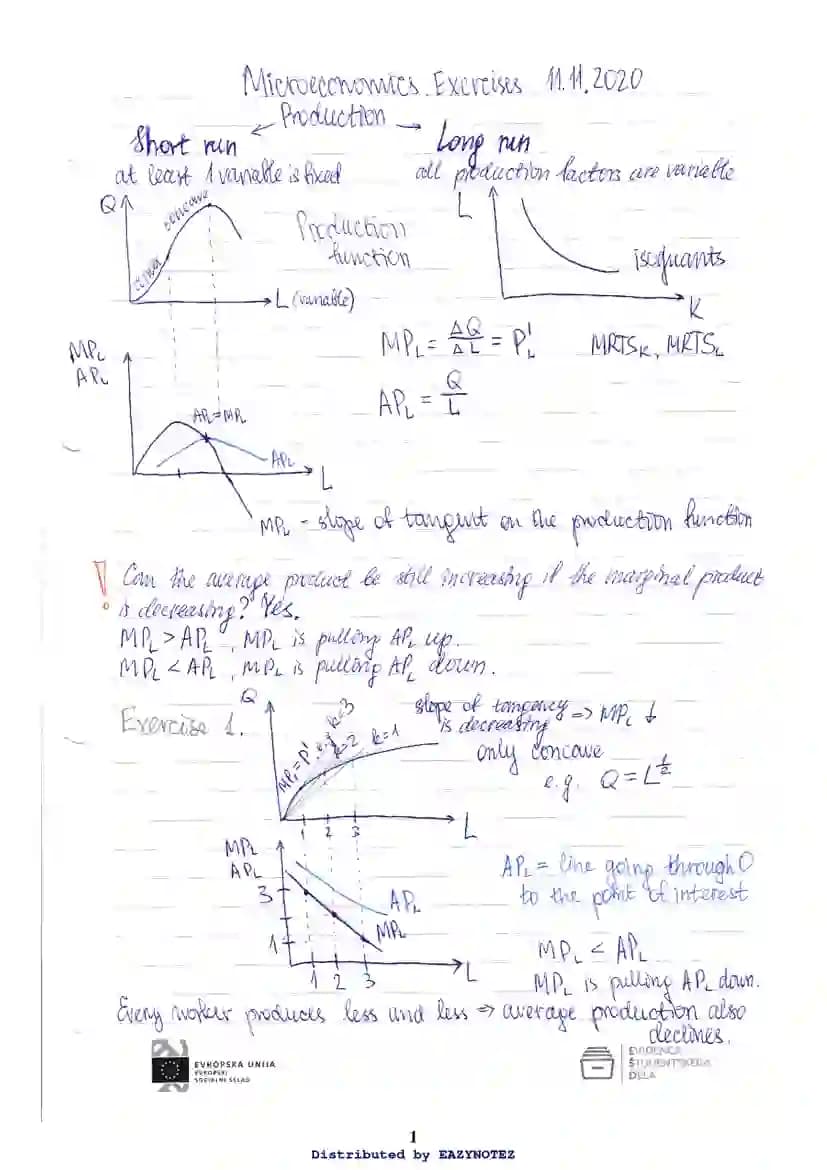 Microeconomics Exercises 11.11.2020
Production
Short run
Long run
at least 1 variable is fixed
all production factors are variable
Q
concave
convex
L (variable)
Production
function
L
isoquants
K
MPL = ΔQ/ΔL = P'L
MRTSK, MRTSL
APL = Q/L
MPL
APL
APL=MPL
APL
L
MPL - slope of tangent on the production function
! Can the average product be still increasing if the marginal product
is decreasing? Yes.
MPL > APL, MPL is pulling APL up.
MPL < APL, MPL is pulling APL down.
Exercise 1.
Q
MPL = P' e.g. k=3
k=2
k=1
slope of tangency
is decreasing => MPL ↓
only concave
e.g. Q = L^1/2
1 2 3
L
MPL
APL
3
1
APL
MPL
1 2 3
L
APL = line going through 0
to the point of interest
MPL < APL
MPL is pulling APL down.
Every worker produces less and less => average production also
declines.
EVROPSKA UNIJA
EVROPSKI
SOCIALNI SKLAD
EVIDENCA
ŠTUDENTSKEGA
DELA
1
Distributed by EAZYNOTEZ